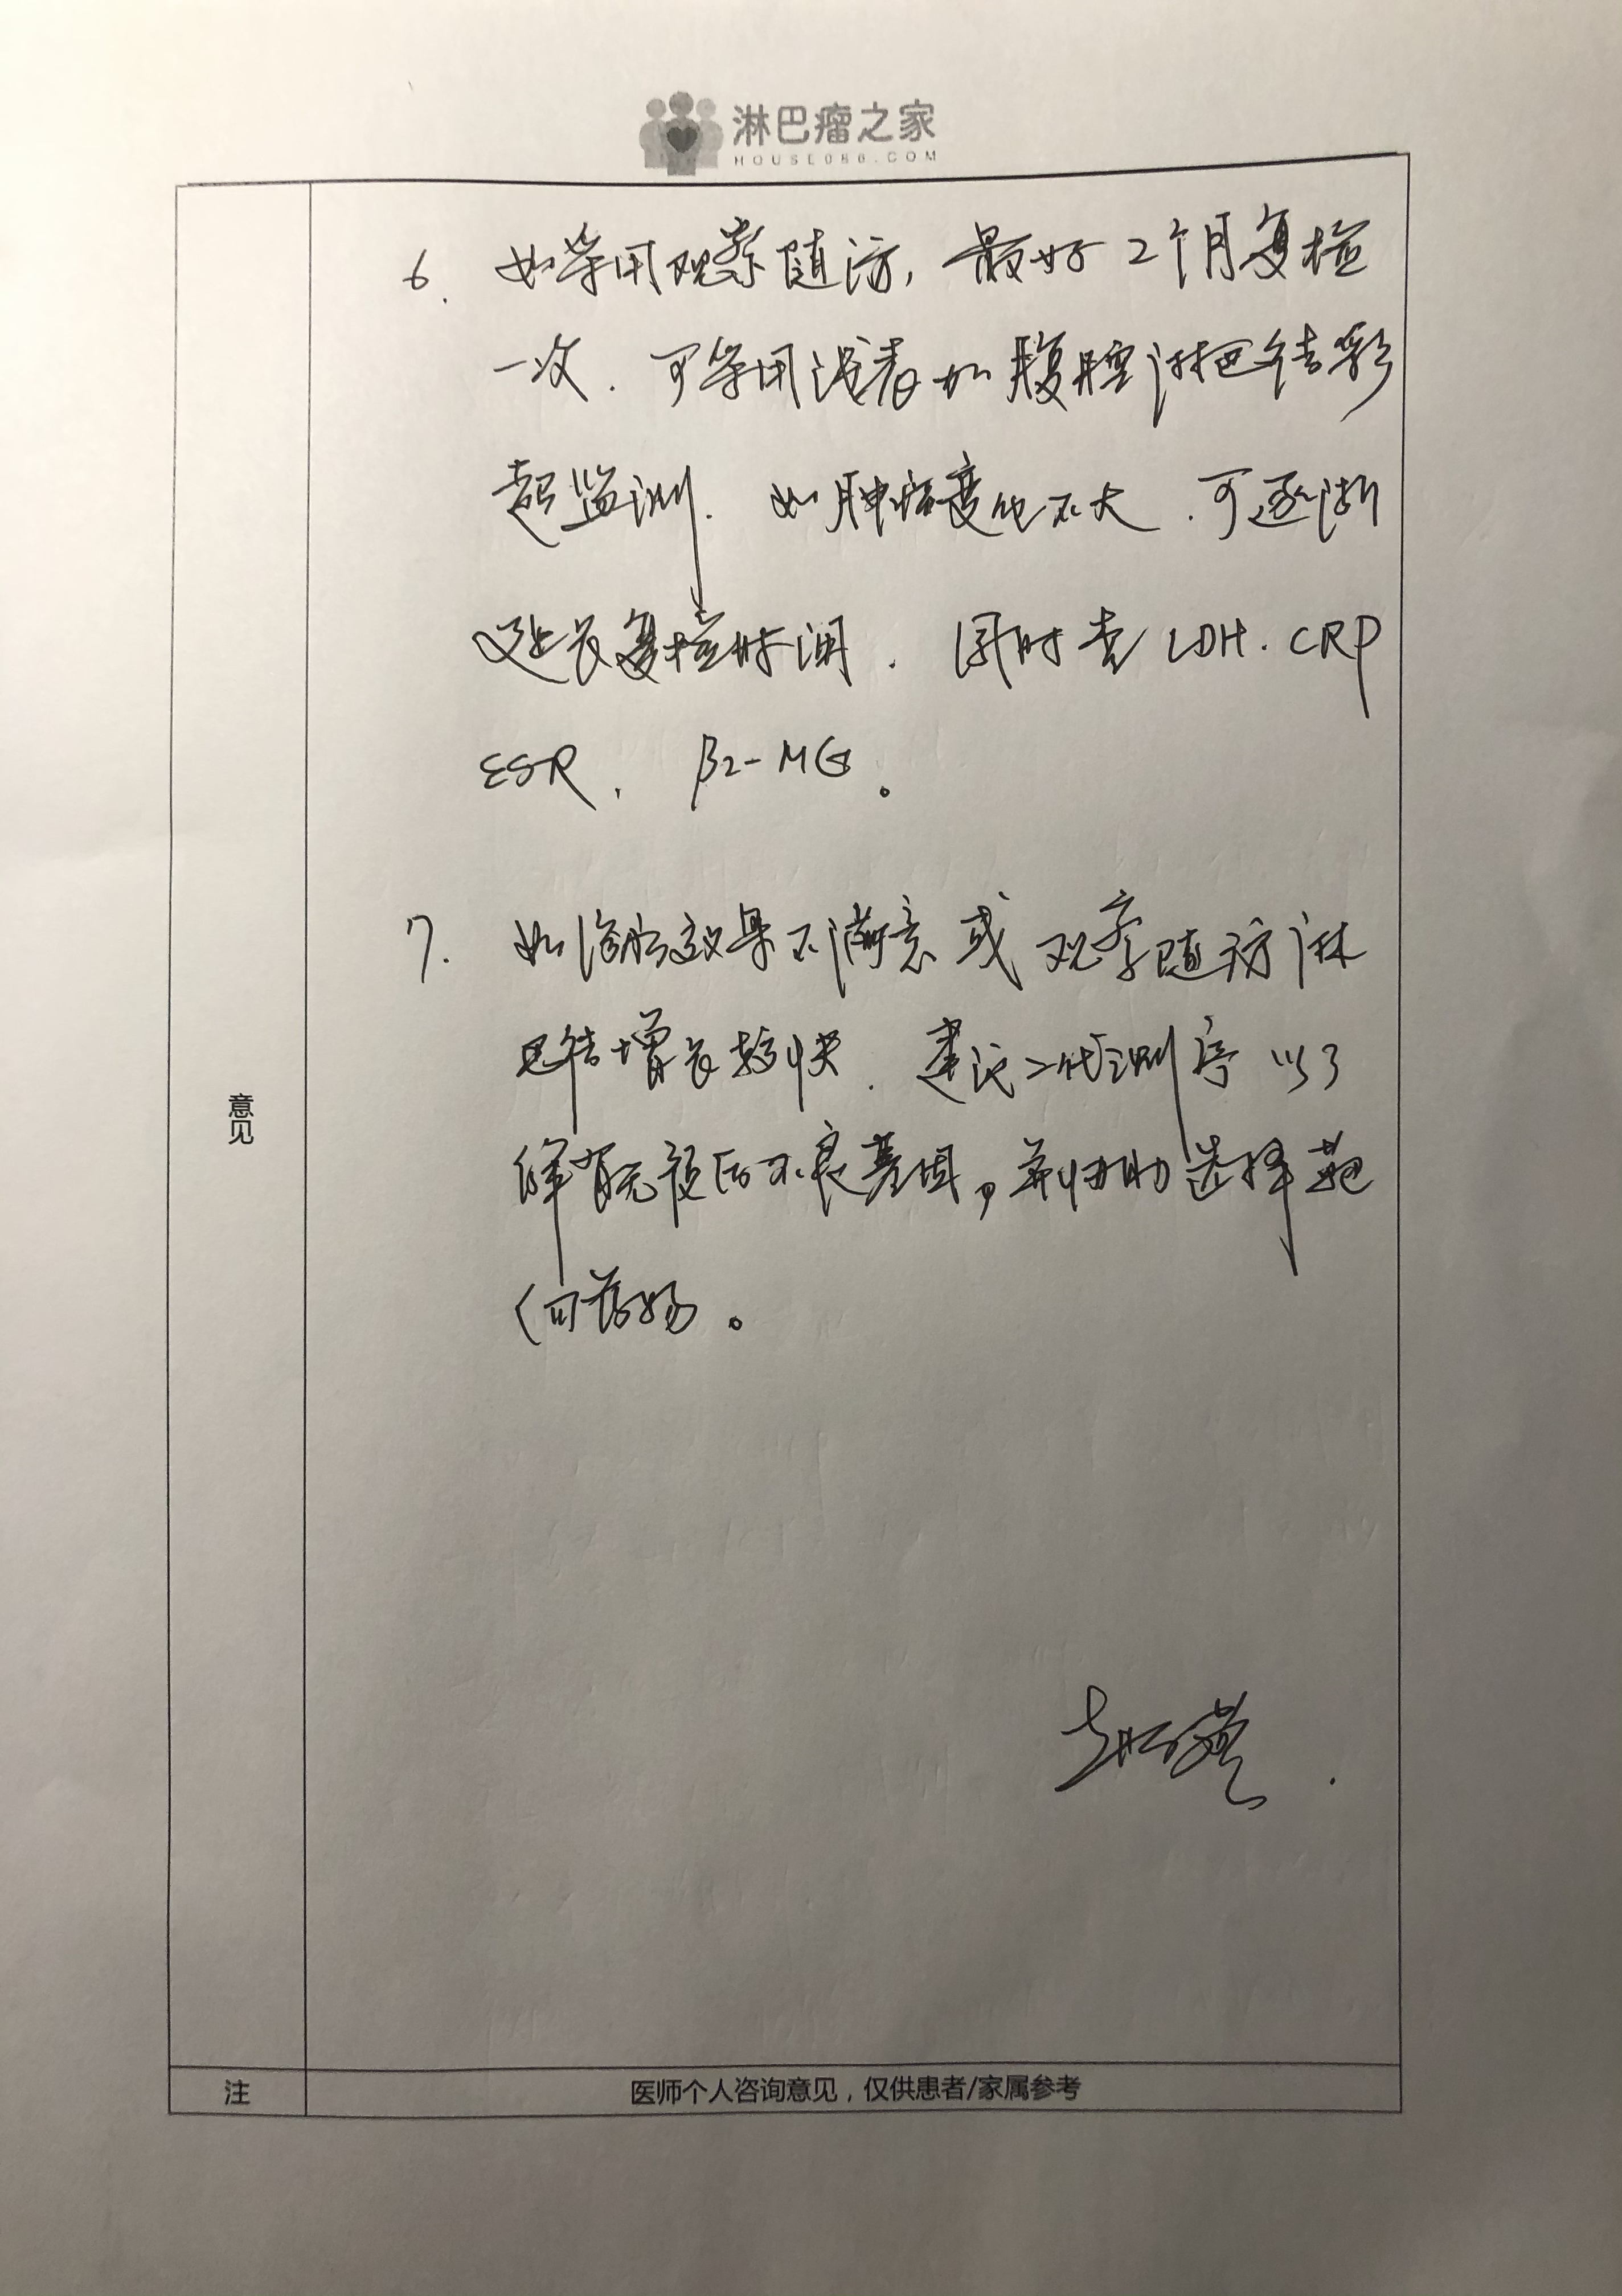 淋巴瘤之家
HOUSE086.COM
6. 如采用观察随访，最好2个月复检
一次．可采用浅表加腹腔淋巴结彩
超监测．如肿瘤变化不大．可逐渐
延长复检时间．同时查LDH．CRP
ESR．β2-MG。
7. 如治疗效果不满意或观察随访淋
巴结增长较快．建议二代测序以了
解有无预后不良基因，并帮助选择靶
向药物。
意见
注
医师个人咨询意见，仅供患者/家属参考